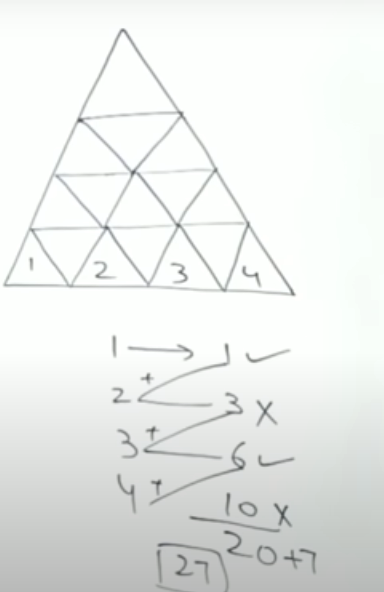 1 2 3 4
1 → 1 ✓
2 + 3 X
3 + 6 ✓
4 + 10 X
20+7
27